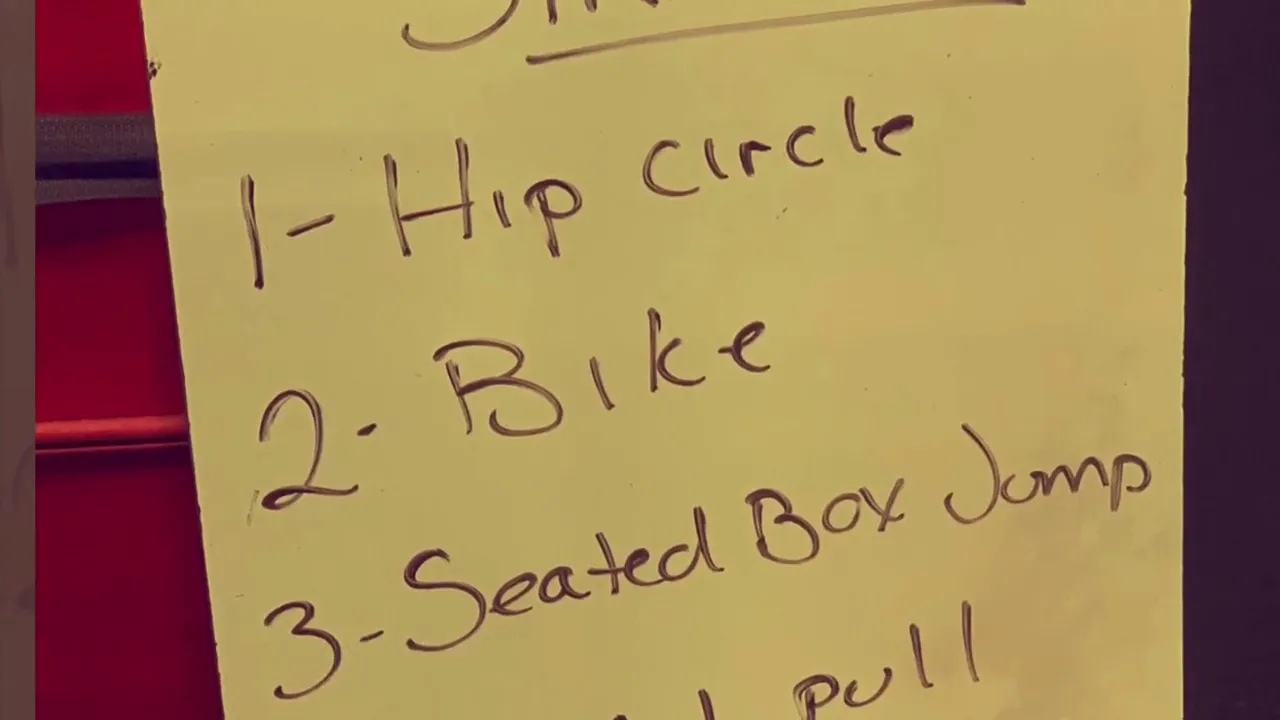 1- Hip circle
2- Bike
3- Seated Box Jump
pull